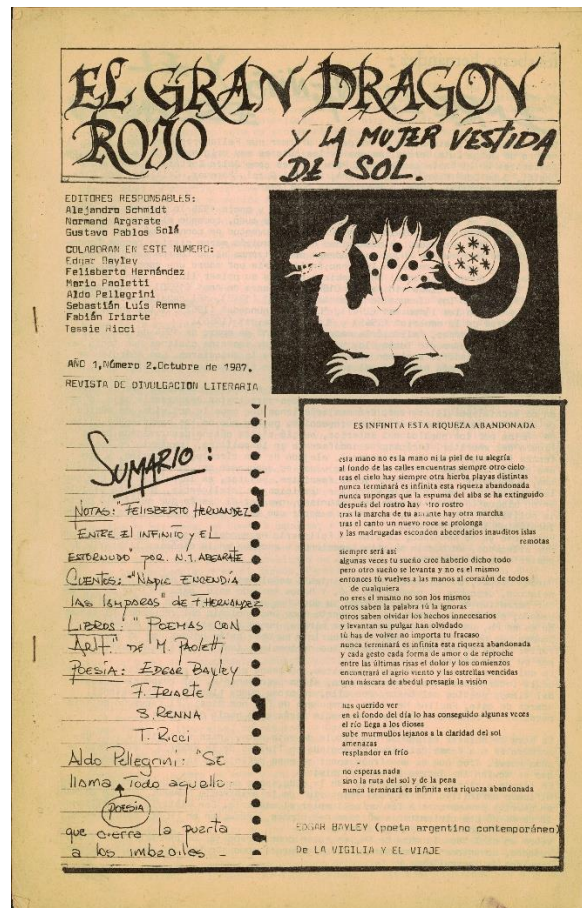 EL GRAN DRAGON
ROJO
Y LA MUJER VESTIDA
DE SOL.
EDITORES RESPONSABLES:
Alejandro Schmidt
Normand Argarate
Gustavo Pablos Solá
COLABORAN EN ESTE NUMERO:
Edgar Bayley
Felisberto Hernández
Mario Paoletti
Aldo Pellegrini
Sebastián Luís Renna
Fabián Iriarte
Tessie Ricci
AÑO 1,Número 2.Octubre de 1987.
REVISTA DE DIVULGACION LITERARIA
SUMARIO:
NOTAS: "FELISBERTO HERNANDEZ
ENTRE El INFINITO y EL
ESTORNUDO" por. N.J. ARGARATE
CUENTOS: "NADIE ENCENDÍA
las lámparas" de F. HERNANDEZ
LIBROS: "POEMAS CON
Arlt." DE M. Paoletti
POESÍA: EDGAR BAYLEY
F. IRIARTE
S. RENNA
T. Ricci
Aldo Pellegrini: "SE
llama Todo aquello
POESÍA
que cierra la puerta
a los imbéciles -
ES INFINITA ESTA RIQUEZA ABANDONADA
esta mano no es la mano ni la piel de tu alegría
al fondo de las calles encuentras siempre otro cielo
tras el cielo hay siempre otra hierba playas distintas
nunca terminará es infinita esta riqueza abandonada
nunca supongas que la espuma del alba se ha extinguido
después del rostro hay otro rostro
tras la marcha de tu amante hay otra marcha
tras el canto un nuevo roce se prolonga
y las madrugadas esconden abecedarios inauditos islas
remotas
siempre será así
algunas veces tu sueño cree haberlo dicho todo
pero otro sueño se levanta y no es el mismo
entonces tú vuelves a las manos al corazón de todos
de cualquiera
no eres el mismo no son los mismos
otros saben la palabra tú la ignoras
otros saben olvidar los hechos innecesarios
y levantan su pulgar han olvidado
tú has de volver no importa tu fracaso
nunca terminará es infinita esta riqueza abandonada
y cada gesto cada forma de amor o de reproche
entre las últimas risas el dolor y los comienzos
encontrará el agrio viento y las estrellas vencidas
una máscara de abedul presagia la visión
has querido ver
en el fondo del día lo has conseguido algunas veces
el río llega a los dioses
sube murmullos lejanos a la claridad del sol
amenazas
resplandor en frío
no esperas nada
sino la ruta del sol y de la pena
nunca terminará es infinita esta riqueza abandonada
EDGAR BAYLEY (poeta argentino contemporáneo)
De LA VIGILIA Y EL VIAJE